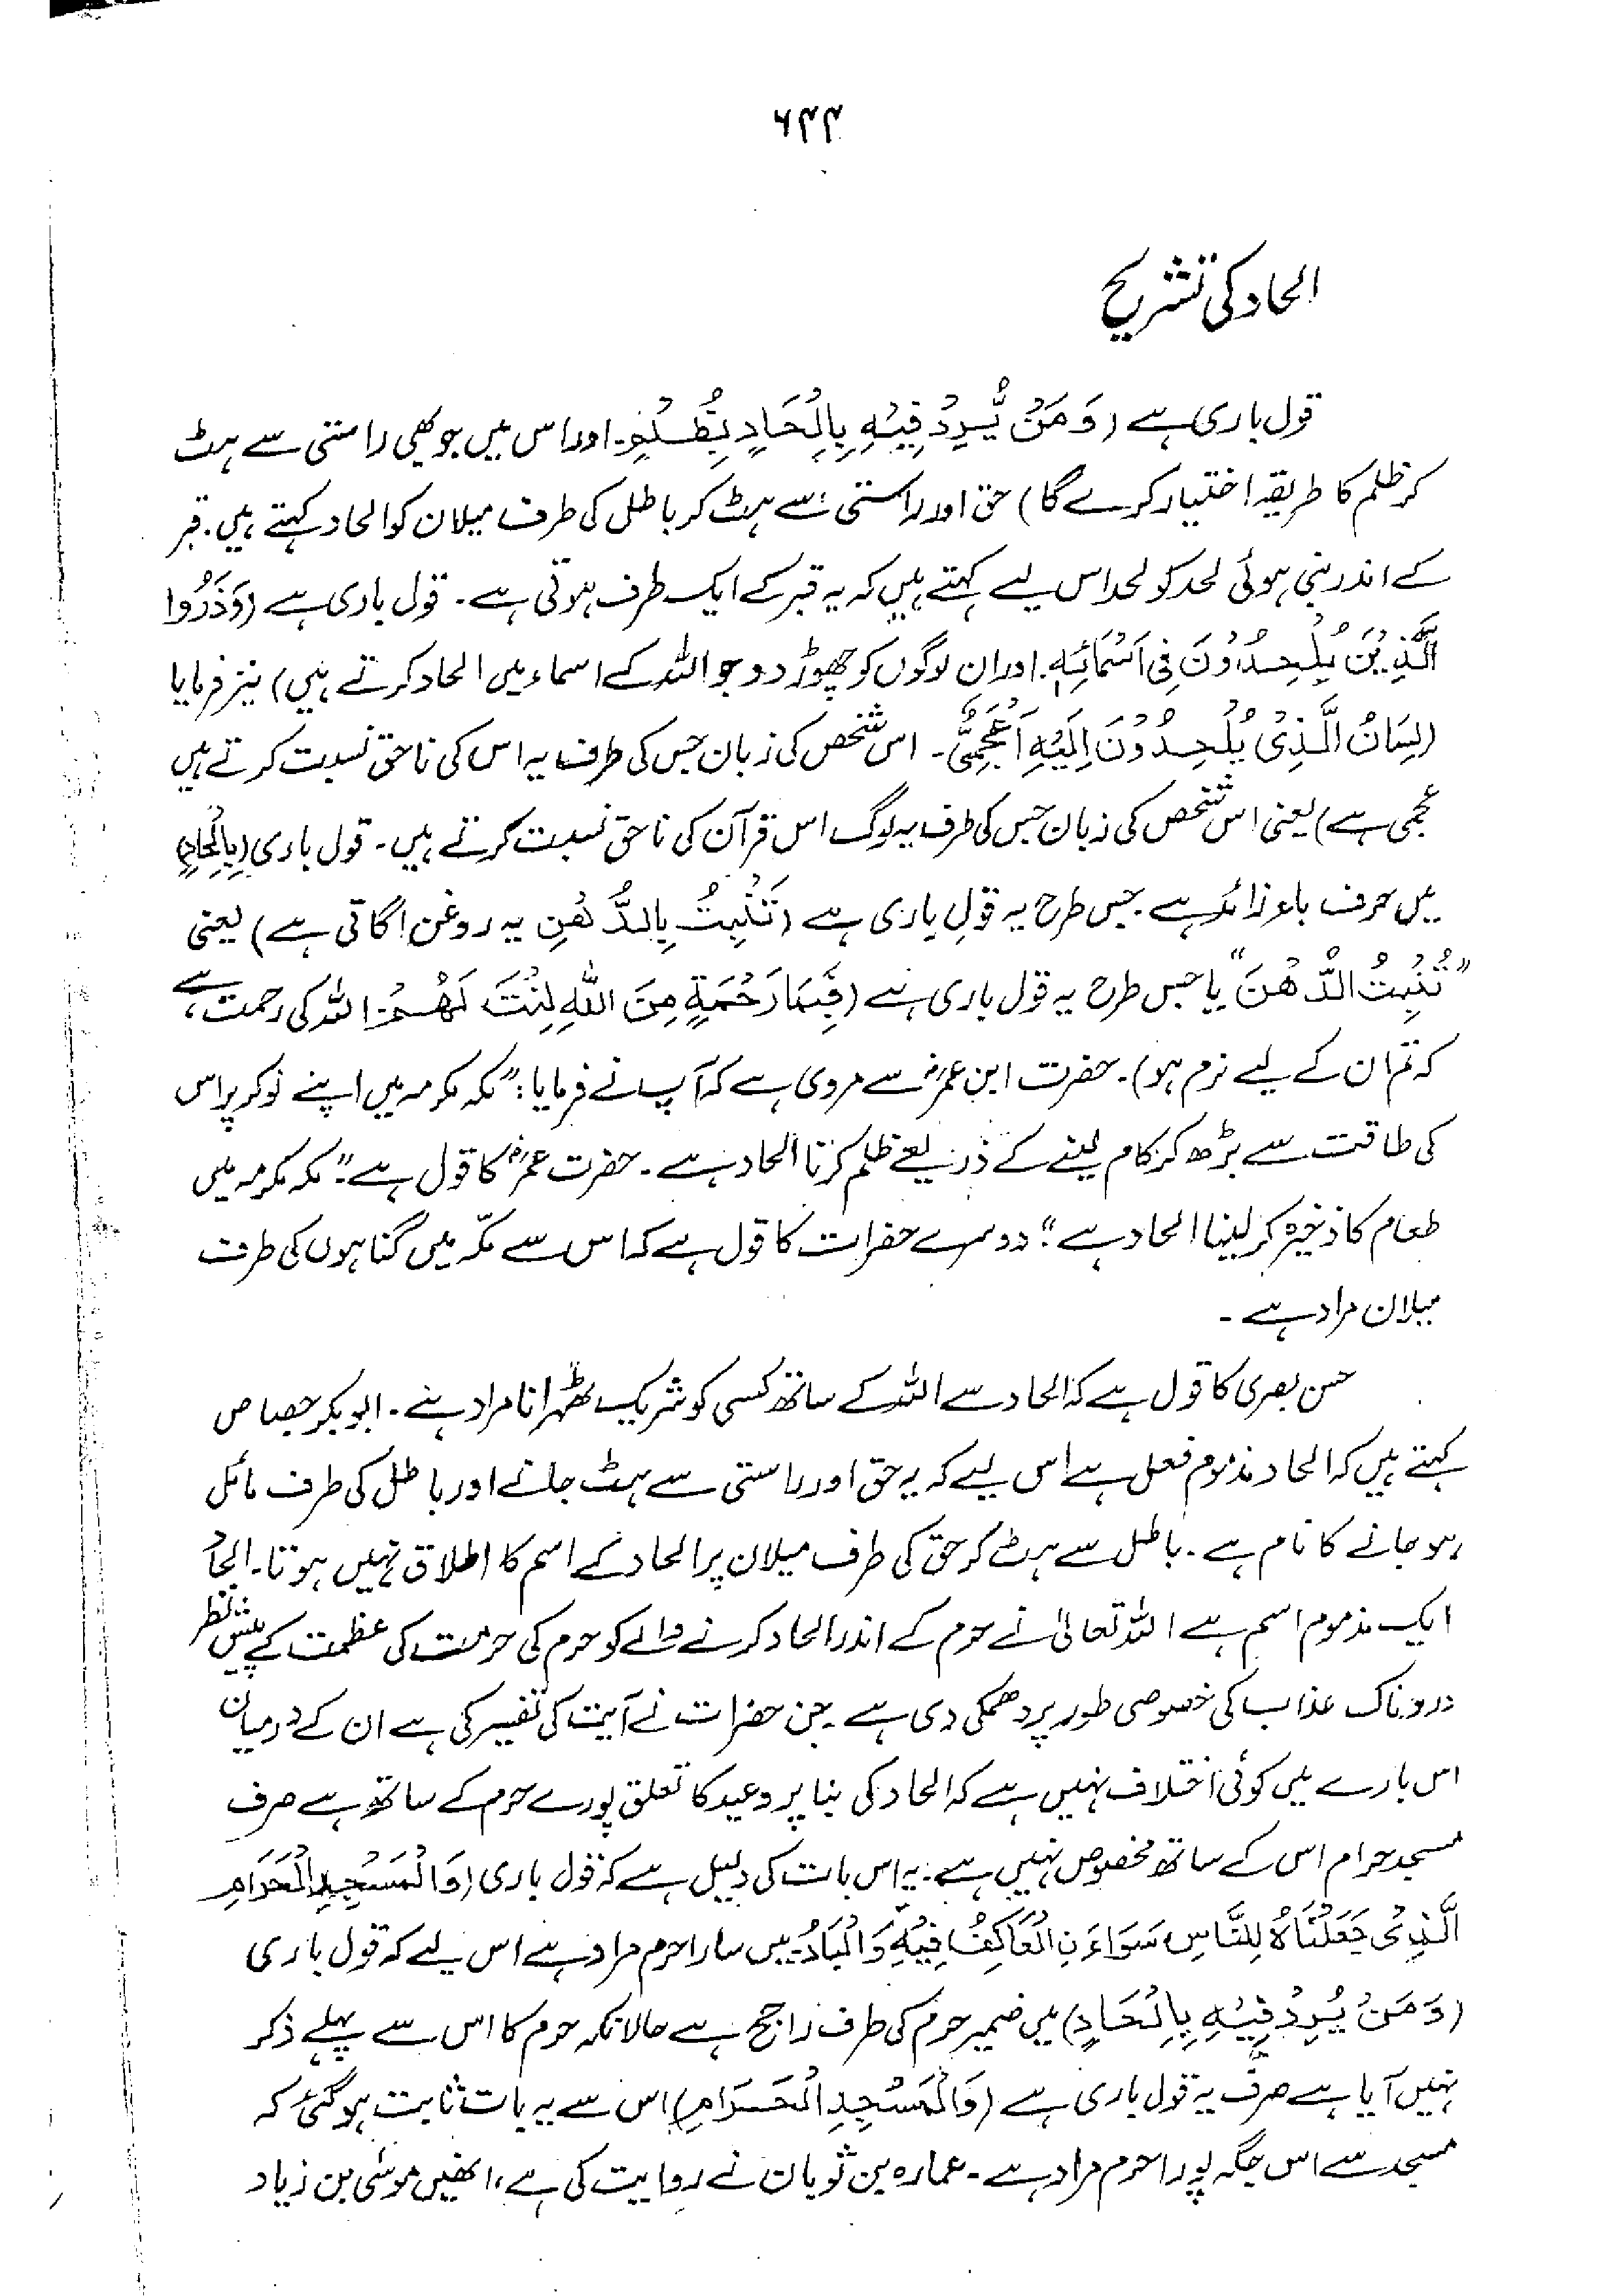 ۶۴۴
الحاد کی تشریح
قول باری ہے (وَمَنْ يُّرِدْ فِيْهِ بِاِلْحَادٍ بِظُلْمٍ۔ اور اس میں جو بھی راستی سے ہٹ
کر ظلم کا طریقہ اختیار کرے گا) حق اور راستی سے ہٹ کر باطل کی طرف میلان کو الحاد کہتے ہیں۔ قبر
کے اندر بنی ہوئی لحد کو لحد اس لیے کہتے ہیں کہ یہ قبر کے ایک طرف ہوتی ہے۔ قول باری ہے (وَذَرُوا
الَّذِيْنَ يُلْحِدُوْنَ فِىْ اَسْمَائِهٖ۔ اور ان لوگوں کو چھوڑ دو جو اللہ کے اسماء میں الحاد کرتے ہیں) نیز فرمایا
(لِسَانُ الَّذِىْ يُلْحِدُوْنَ اِلَيْهِ اَعْجَمِىٌّ۔ اس شخص کی زبان جس کی طرف یہ اس کی ناحق نسبت کرتے ہیں
عجمی ہے) یعنی اس شخص کی زبان جس کی طرف یہ لوگ اس قرآن کی ناحق نسبت کرتے ہیں۔ قول باری (بِاِلْحَادٍ)
میں حرف باء زائد ہے۔ جس طرح یہ قول باری ہے (تَنْبُتُ بِالدُّهْنِ یہ روغن اگاتی ہے) یعنی
"تُنْبِتُ الدُّهْنَ" یا جس طرح یہ قول باری ہے (فَبِمَا رَحْمَةٍ مِنَ اللّٰهِ لِنْتَ لَهُمْ اللہ کی رحمت ہے،
کہ تم ان کے لیے نرم ہو)۔ حضرت ابن عمرؓ سے مروی ہے کہ آپ نے فرمایا: "مکہ مکرمہ میں اپنے نوکر پر اس
کی طاقت سے بڑھ کر کام لینے کے ذریعے ظلم کرنا الحاد ہے۔ حضرت عمرؓ کا قول ہے" مکہ مکرمہ میں
طعام کا ذخیرہ کر لینا الحاد ہے" دوسرے حضرات کا قول ہے کہ اس سے مکّہ میں گناہوں کی طرف
میلان مراد ہے۔
حسن بصری کا قول ہے کہ الحاد سے اللہ کے ساتھ کسی کو شریک ٹھہرانا مراد ہے۔ ابوبکر جصاص
کہتے ہیں کہ الحاد مذموم فعل ہے اس لیے کہ یہ حق اور راستی سے ہٹ جانے اور باطل کی طرف مائل
ہو جانے کا نام ہے۔ باطل سے ہٹ کر حق کی طرف میلان پر الحاد کے اسم کا اطلاق نہیں ہوتا۔ الحاد
ایک مذموم اسم ہے اللہ تعالیٰ نے حرم کے اندر الحاد کرنے والے کو حرم کی حرمت کی عظمت کے پیش نظر
دردناک عذاب کی خصوصی طور پر دھمکی دی ہے۔ جن حضرات نے آیت کی تفسیر کی ہے ان کے درمیان
اس بارے میں کوئی اختلاف نہیں ہے کہ الحاد کی بنا پر وعید کا تعلق پورے حرم کے ساتھ ہے صرف
مسجد حرام اس کے ساتھ مخصوص نہیں ہے۔ یہ اس بات کی دلیل ہے کہ قول باری (وَالْمَسْجِدِ الْحَرَامِ
الَّذِىْ جَعَلْنَاهُ لِلنَّاسِ سَوَاءَنِ الْعَاكِفُ فِيْهِ وَالْبَادُ) میں سارا حرم مراد ہے اس لیے کہ قول باری
(وَمَنْ يُرِدْ فِيْهِ بِاِلْحَادٍ) میں ضمیر حرم کی طرف راجع ہے حالانکہ حرم کا اس سے پہلے ذکر
نہیں آیا ہے صرف یہ قول باری ہے (وَالْمَسْجِدِ الْحَرَامِ) اس سے یہ بات ثابت ہو گئی کہ
مسجد سے اس جگہ پورا حرم مراد ہے۔ عمارہ بن ثوبان نے روایت کی ہے، انھیں موسٰی بن زیاد